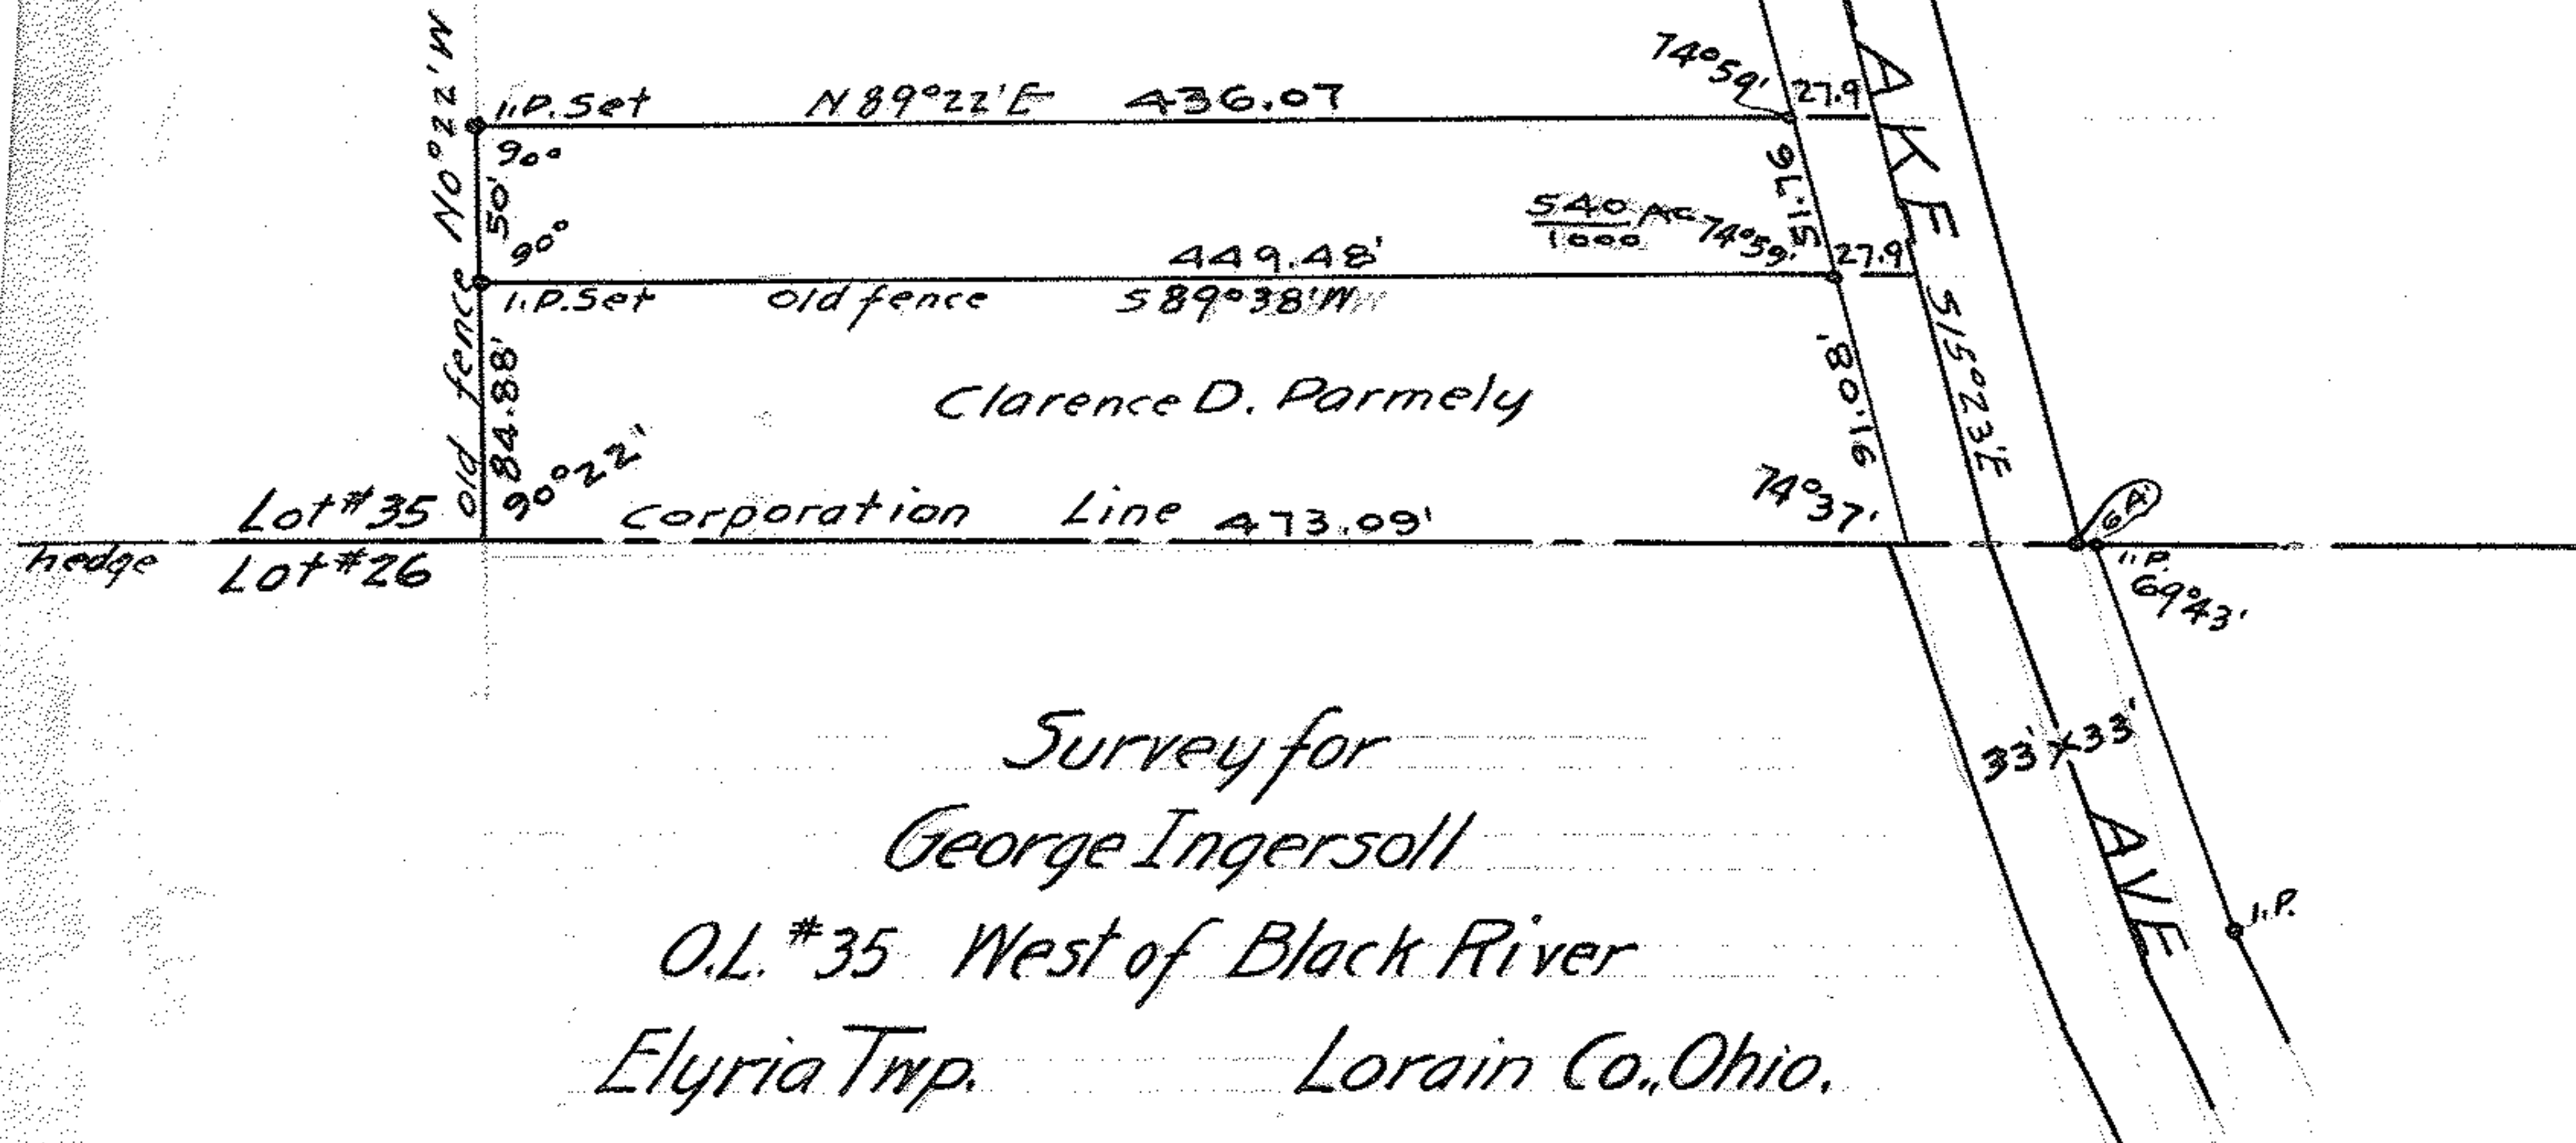 No°22'W
I.P. Set N 89°22'E 436.07
74°59'
27.9
90°
50'
51.76
90°
540/1000 Ac
74°59'
27.9
449.48'
I.P. Set Old fence S 89°38'W
AKE
S15°23'E
old fence
84.88'
91.08'
Clarence D. Parmely
90°22'
74°37'
Lot #35 Corporation Line 473.09'
hedge Lot #26
I.P.
69°43'
33' x 33'
AVE
I.P.
Survey for
George Ingersoll
O.L. #35 West of Black River
Elyria Twp. Lorain Co., Ohio.